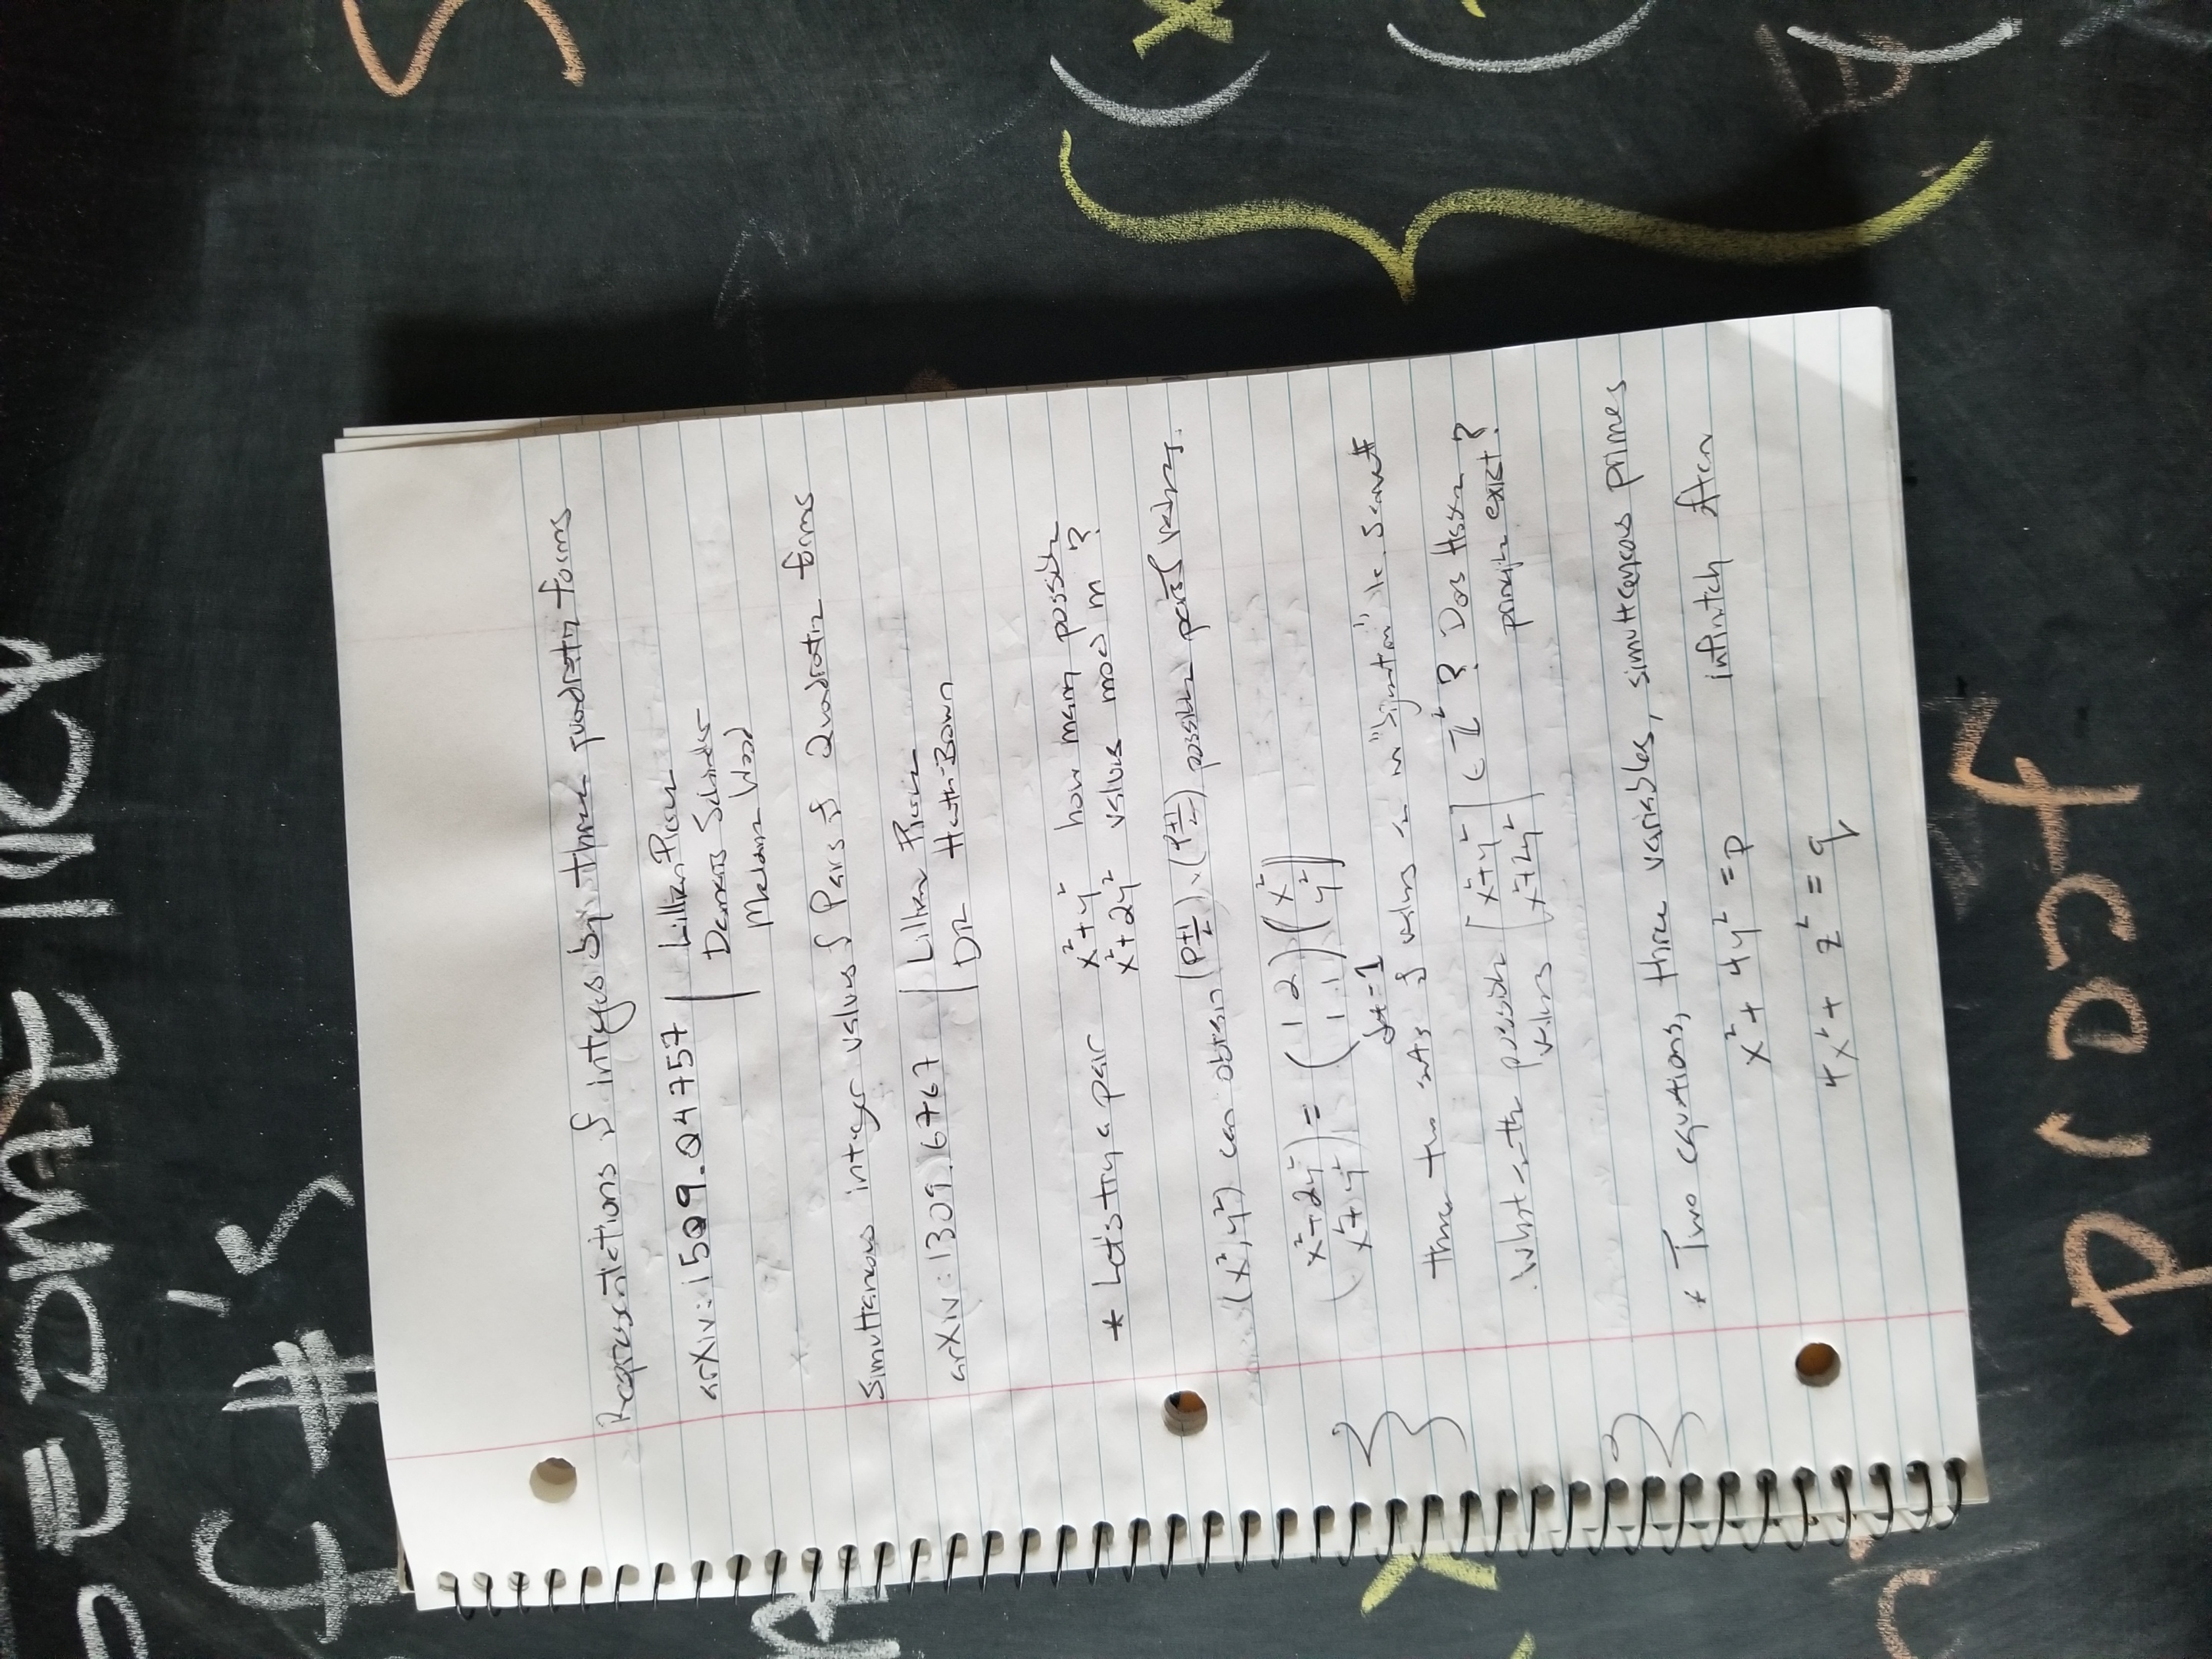 EOMETRY
f #'s
Representations of integers by three quadratic forms
arXiv: 1509.04757 | Lillian Pierce
Damaris Schindler
Melanie Wood
Simultaneous integer values of Pairs of Quadratic forms
arXiv: 1309.6767 | Lillian Pierce
DR Heath-Brown
* Let's try a pair x²+y² how many possible
x²+2y² values mod m?
(x², y²) can obtain (p+1/2) × (p+1/2) possible pairs of values.
(x²+2y²) = (1 2) (x²)
(x²+y²) (1 1) (y²)
det=1
these two sets of values are in "bijection" ie. same #
What are the possible [x²+y²] ∈ ℤ² ? Does Hasse
values [x²+2y²] principle exist?
* Two equations, three variables, simultaneous primes
x² + 4y² = p infinitely often
4x² + z² = q
proof